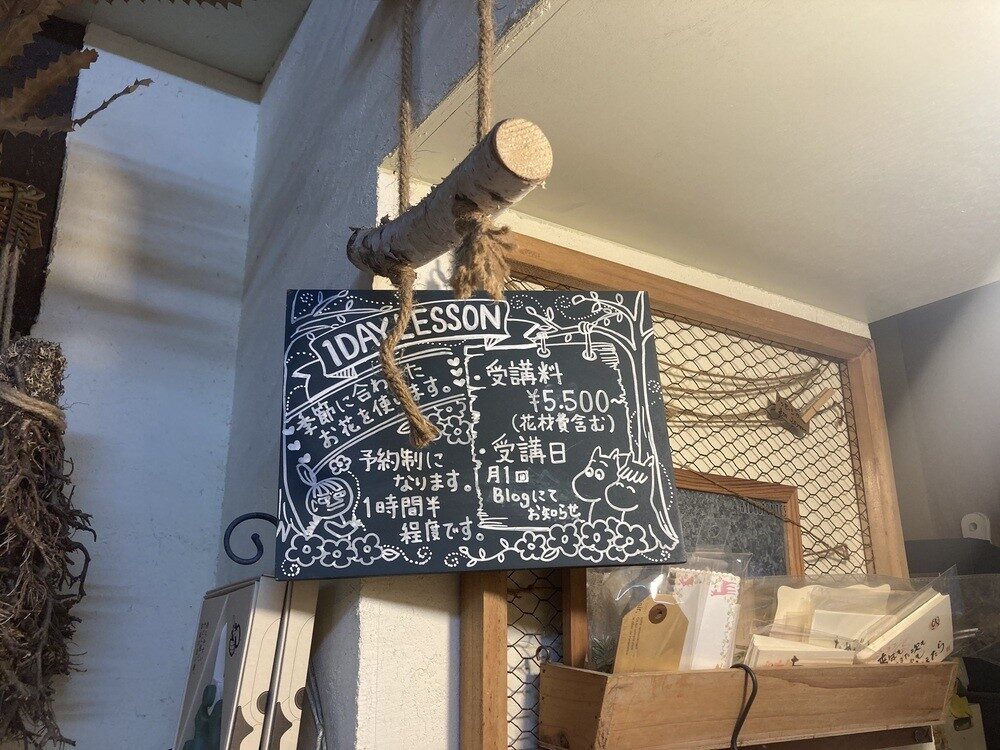 1DAY LESSON
季節に合わせた
お花を使います。
予約制に
なります。
1時間半
程度です。
・受講料
¥5.500~
(花材費含む)
・受講日
月1回
Blogにて
お知らせ